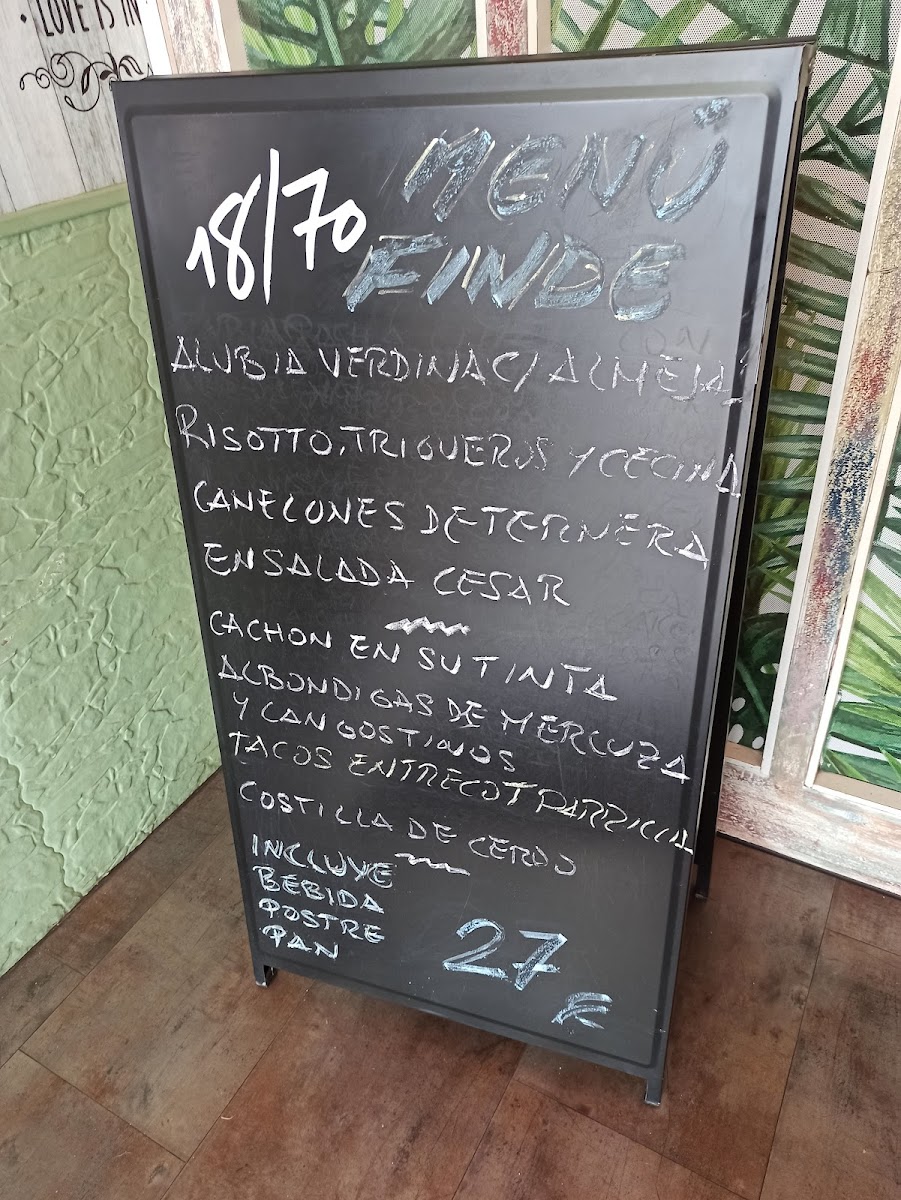 LOVE IS IN
MENÚ
18/70
FINDE
ALUBIA VERDINA C/ ALMEJAS
RISOTTO, TRIGUEROS Y CECINA
CANELONES DE TERNERA
ENSALADA CESAR
CACHON EN SU TINTA
ALBONDIGAS DE MERLUZA
Y LANGOSTINOS
TACOS ENTRECOT PARRILLA
COSTILLA DE CERDO
INCLUYE
BEBIDA
POSTRE
PAN
27
€